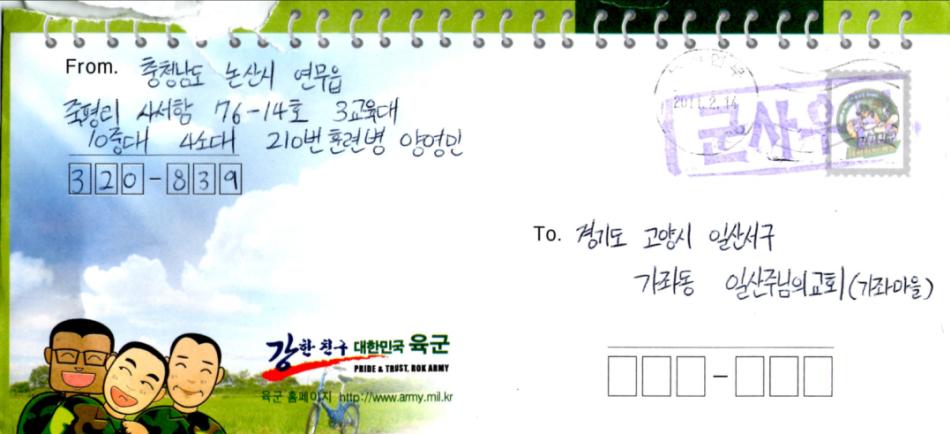 From. 충청남도 논산시 연무읍
죽평리 사서함 76-14호 3교육대
10중대 4소대 210번 훈련병 양영민
320-839
2011.2.14
군사우
To. 경기도 고양시 일산서구
가좌동 일산주님의교회(가좌마을)
강한 친구 대한민국 육군
PRIDE & TRUST, ROK ARMY
육군 홈페이지 http://www.army.mil.kr